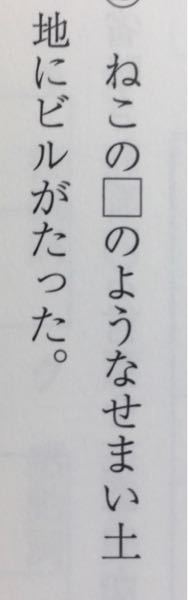 ねこの□のようなせまい土
地にビルがたった。